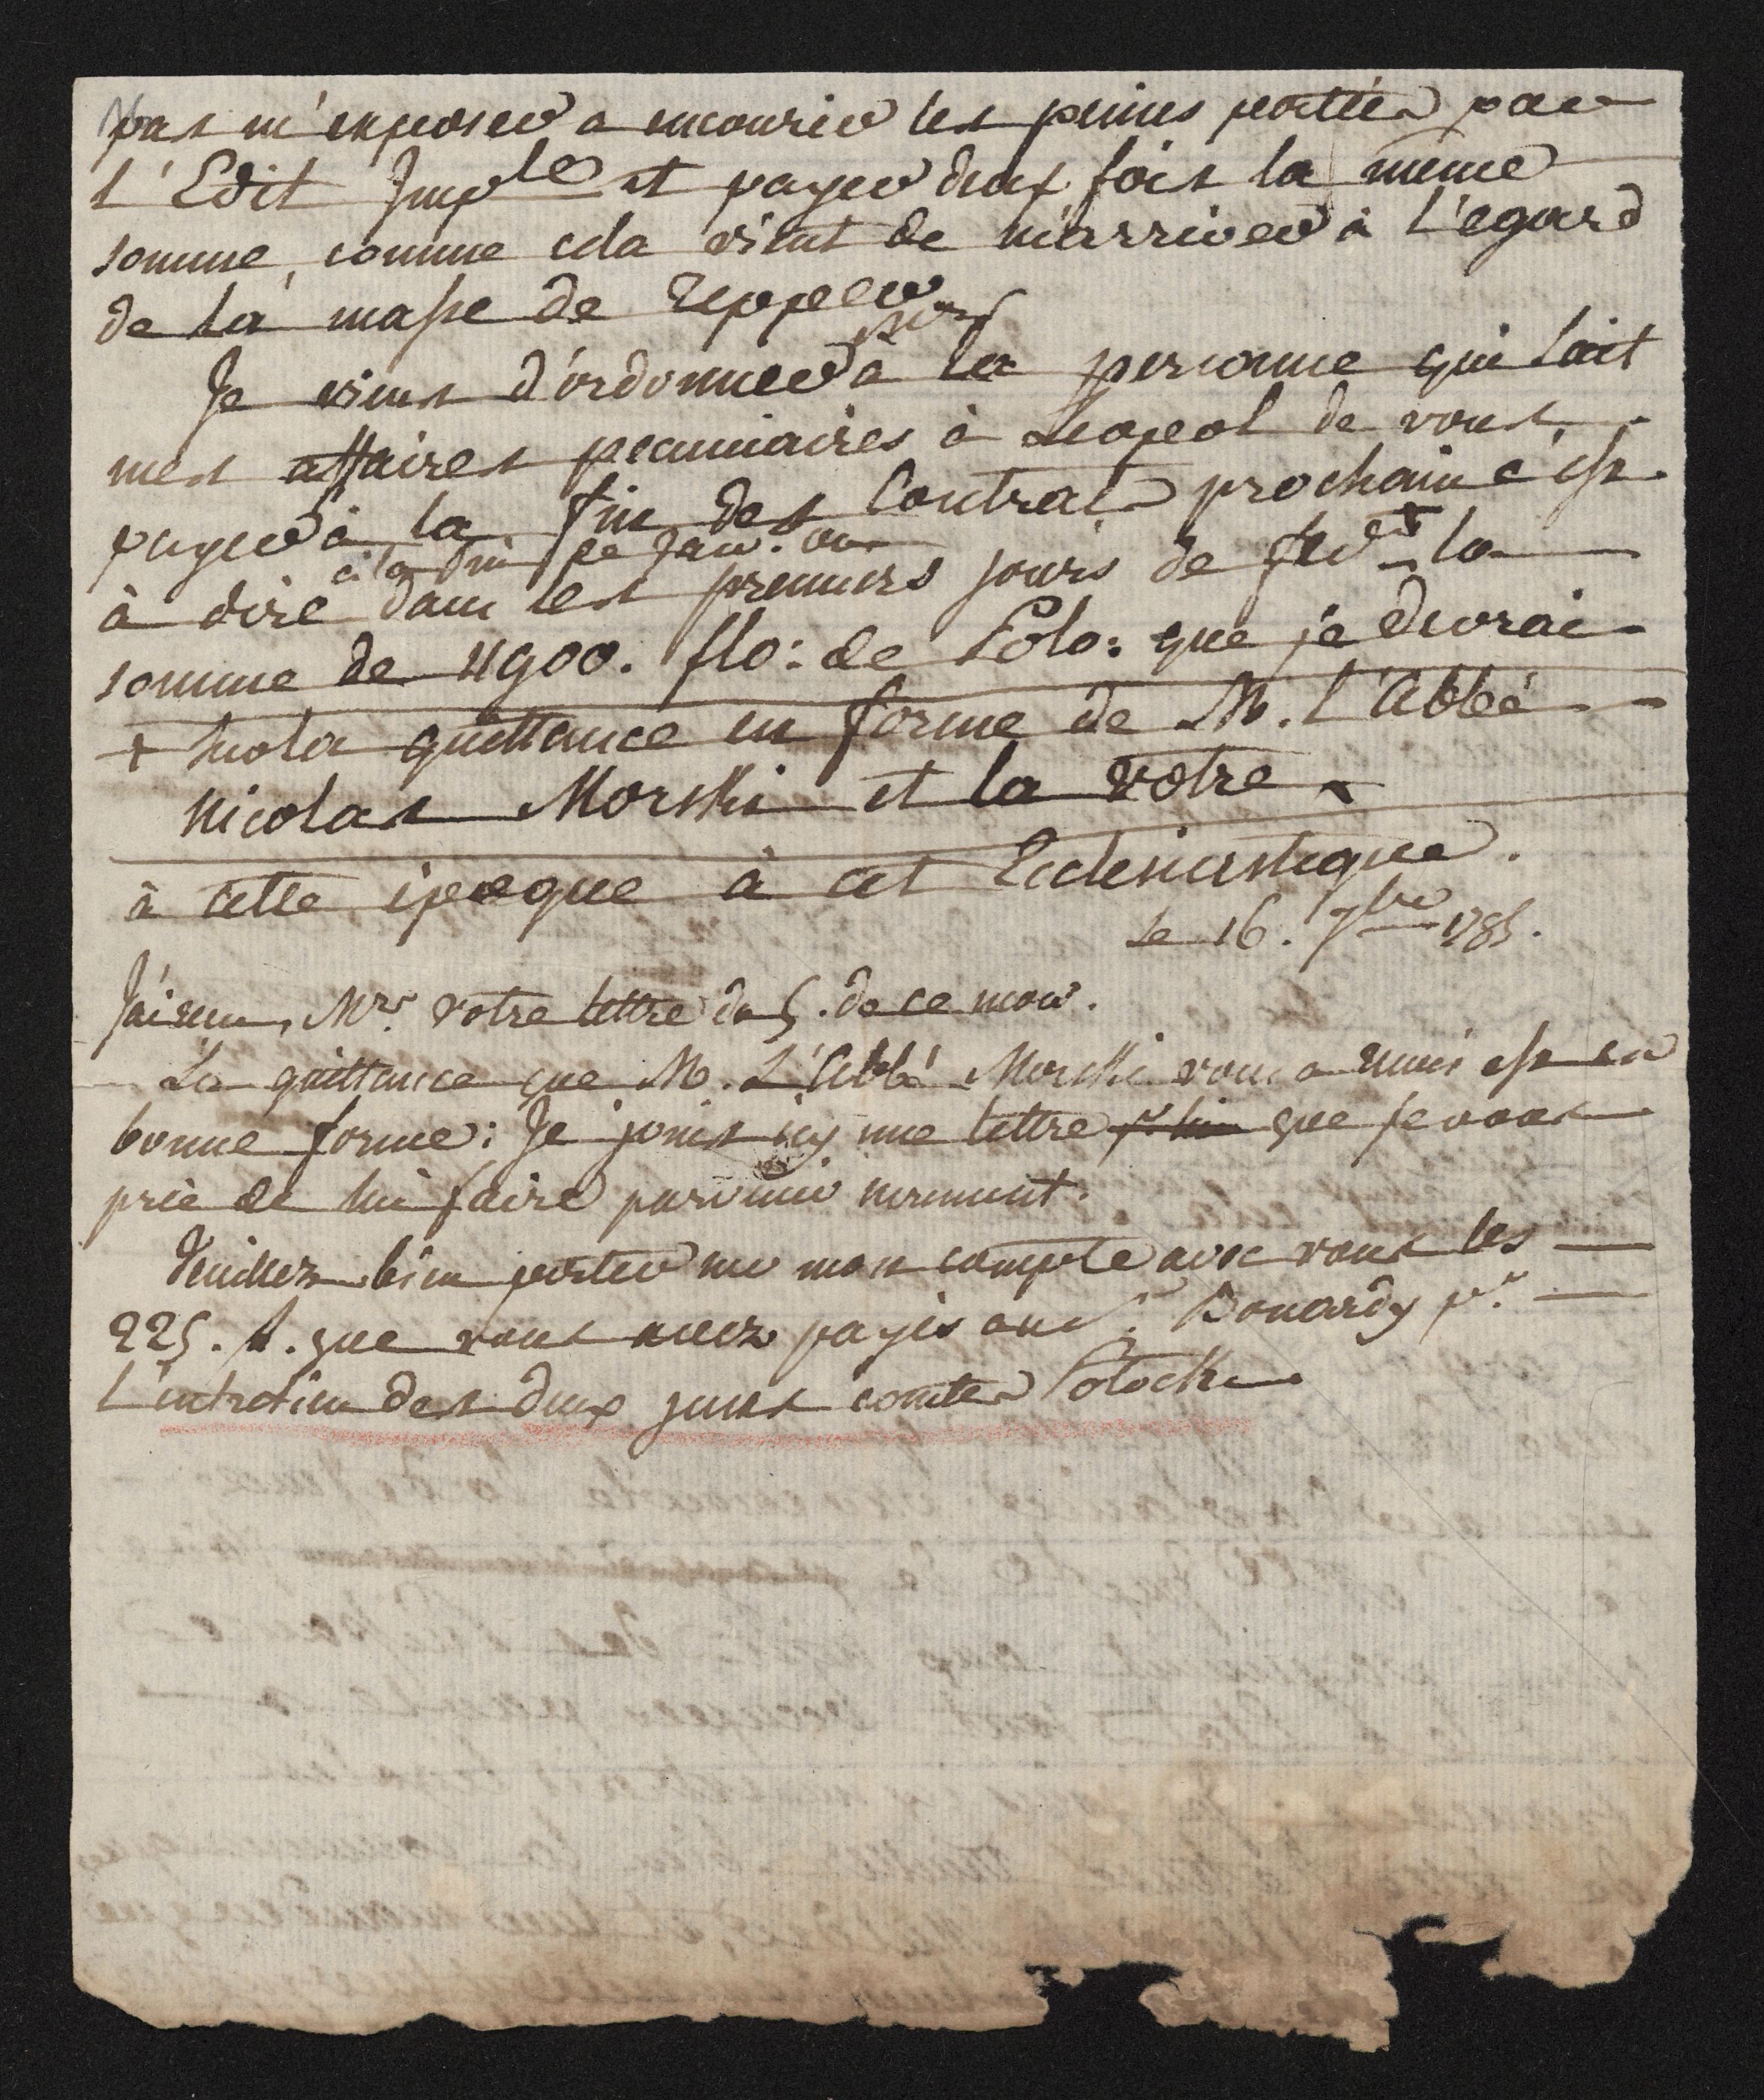 pas m'exposer a encourir les peines portées par
l'Edit Imp^le et payer deux fois la même
somme, comme cela vient de m'arriver à l'egard
de la masse de Tepper
Je viens d'ordonner à la personne qui fait
mes affaires pecuniaires à Leopol de vous
payer à la fin des Contrats prochain c'est
à la fin de Janv. ou
à dire dans les premiers jours de fevr. la
somme de 4900. flo: de Polo: que je devrai
+ sur la quittance en forme de M. l'Abbé
Nicolas Morski et la votre
à cette epoque à cet Ecclesiastique.
Le 16. 7bre 1785.
J'ai reçu, Mr. votre lettre du 5. de ce mois.
La quittance que M. L'Abbé Morski vous a remis est en
bonne forme: Je joins icy une lettre pr. lui que je vous
prie de lui faire parvenir surement.
Veuillez bien porter sur mon compte avec vous les
225. #. que vous avez payés au Sr. Bonardy pr.
L'entretien des deux jeunes comtes Potocki